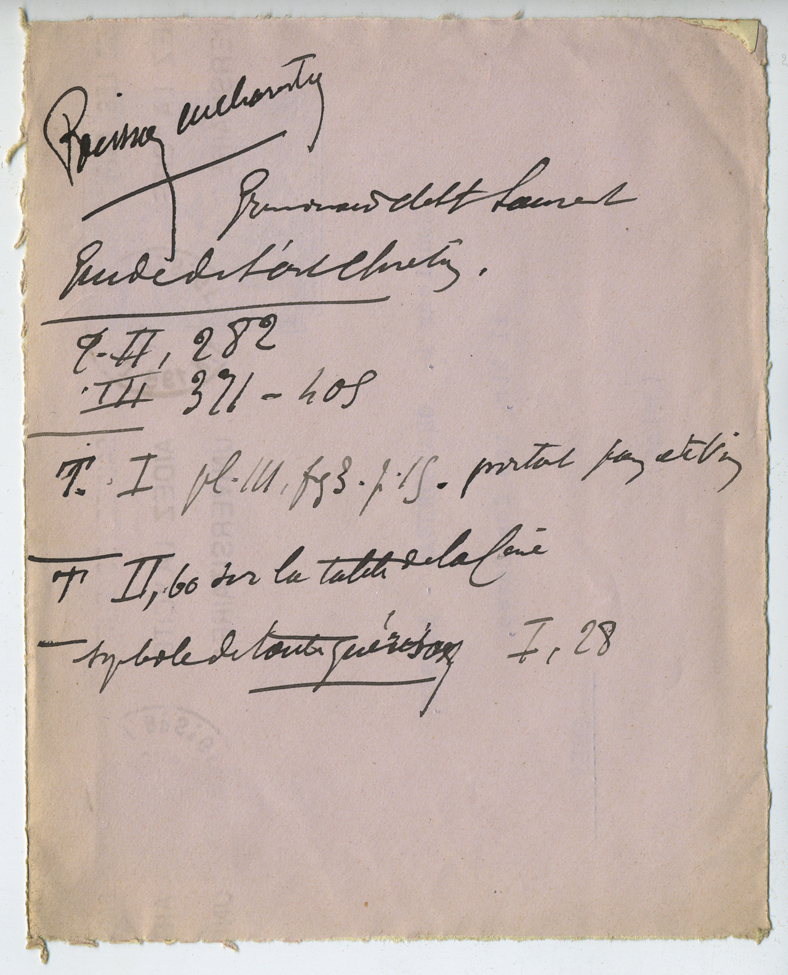 Poisson eucharistiq
Grimouard de St Laurent
Guide de l'art chrétien.
T. II, 282
III 371 - 405
T. I pl. III, fg 3. p. 15. portail
T II, 60 sur la table de la Cène
- symbole de toute guérison I, 28